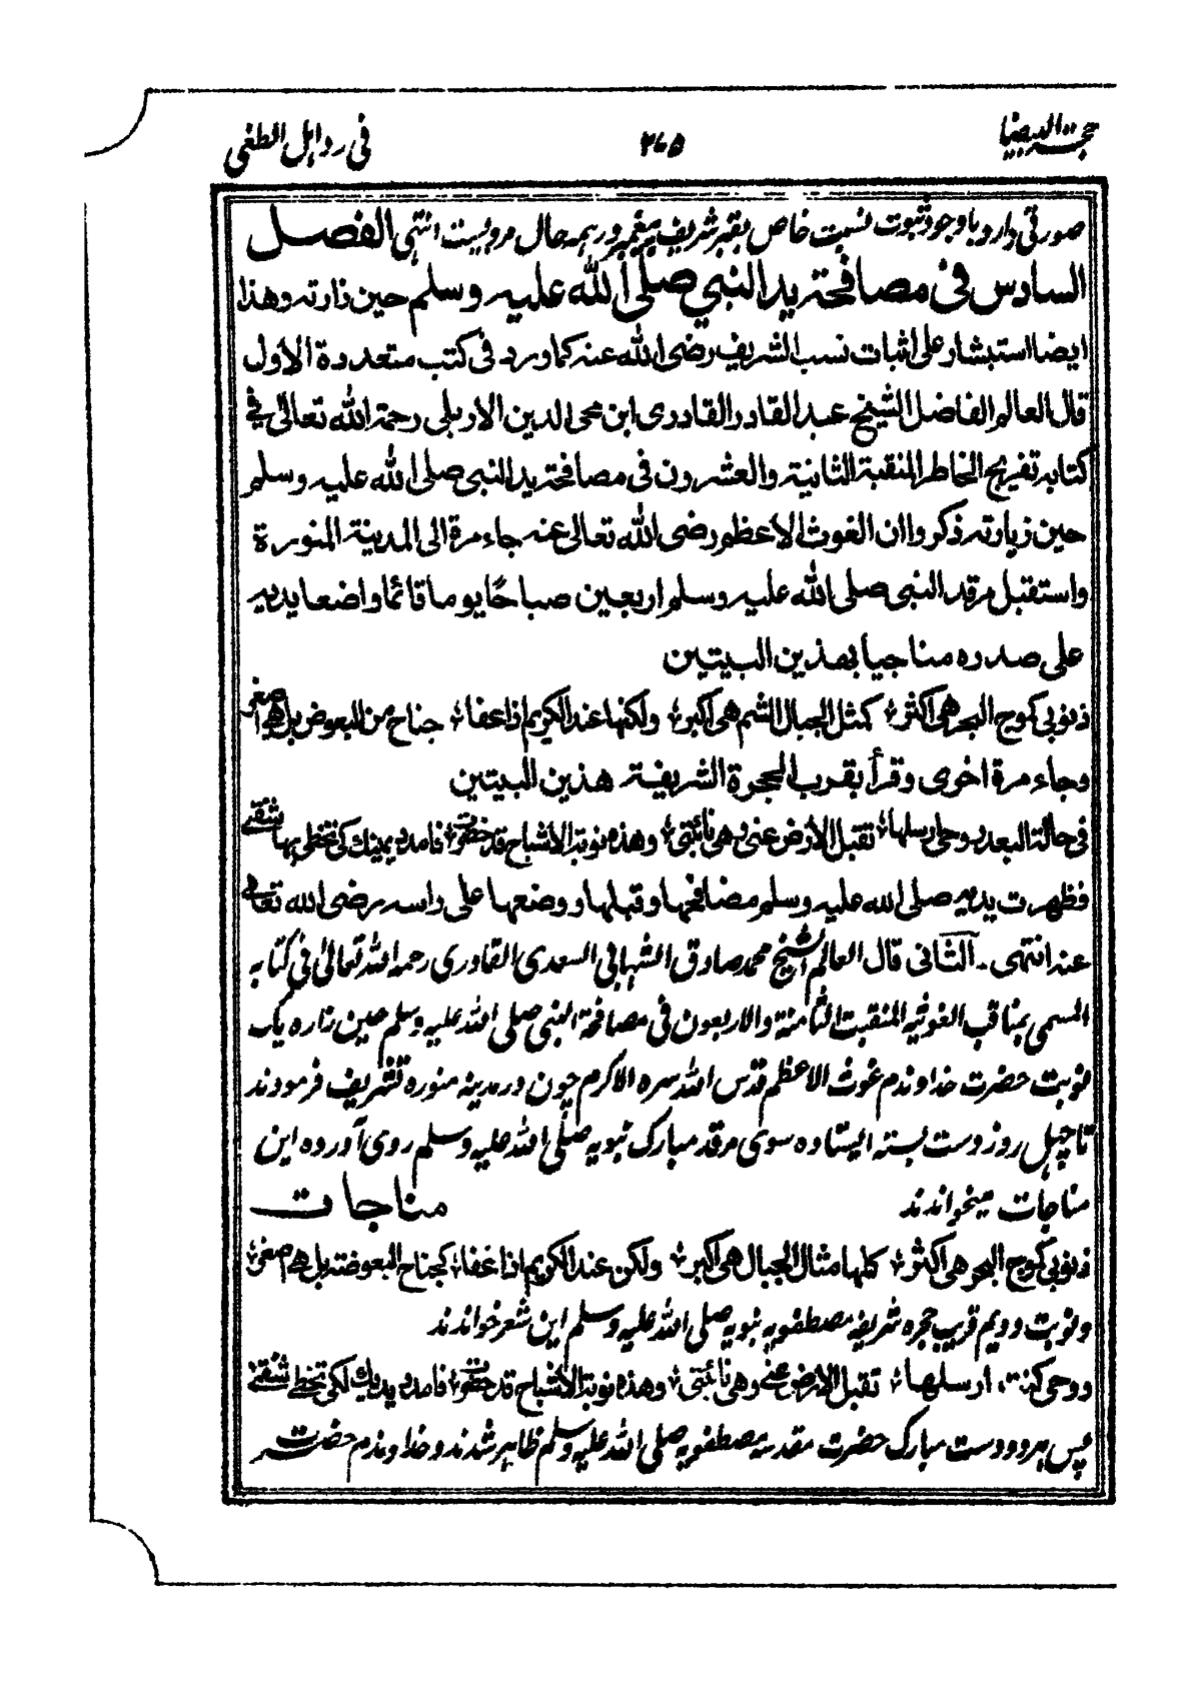 حجة البيضا
٢٦٥
فی رد اہل الطغی
صورتی دارد با وجود ثبوت نسبت خاص بقبر شریف پیغمبر در ہمہ حال مرویست انتہی الفصل
السادس فی مصافحتہ ید النبی صلی اللہ علیہ وسلم حین زارتہ وھذا
ایضا استبشار علی اثبات نسب الشریف رضی اللہ عنہ کما ورد فی کتب متعددة الاول
قال العالم الفاضل الشیخ عبد القادر القادری ابن محی الدین الاربلی رحمة اللہ تعالیٰ فی
کتابہ تفریح الخاطر المنقبة الثانیة والعشرون فی مصافحتہ ید النبی صلی اللہ علیہ وسلم
حین زیارتہ ذکروا ان الغوث الاعظم رضی اللہ تعالیٰ عنہ جاء مرة الی المدینة المنورة
واستقبل مرقد النبی صلی اللہ علیہ وسلم اربعین صباحًا یوما قائما واضعا یدیہ
علی صدرہ مناجیا بھذین البیتین
ذنوبی کموج البحر ھی اکثر ؛ کمثل الجبال الشم ھی اکبر ؛ ولکنھا عند الکریم اذا عفا ؛ جناح من البعوض بل ھی اصغر
وجاء مرة اخری وقرأ بقرب الحجرة الشریفة ھذین البیتین
فی حالة البعد روحی ارسلھا ؛ تقبل الارض عنی وھی نائبتی ؛ وھذہ نوبة الاشباح قد حضرت ؛ فامدد یمینك کی تخطی بھا شفتی
فظھرت یدیہ صلی اللہ علیہ وسلم فصافحھا وقبلھا ووضعھا علی راسہ رضی اللہ تعالی
عنہ انتہی ۔ الثانی قال العالم الشیخ محمد صادق الشہابی السعدی القادری رحمہ اللہ تعالیٰ فی کتابہ
المسمی بمناقب الغوثیہ المنقبت الثامنة والاربعون فی مصافحة النبی صلی اللہ علیہ وسلم حین زارہ یک
نوبت حضرت خداوندم غوث الاعظم قدس اللہ سرہ الاکرم چون در مدینہ منورہ تشریف فرمودند
تا چہل روز دست بستہ ایستادہ سوی مرقد مبارک نبویہ صلی اللہ علیہ وسلم روی آوردہ این
مناجات میخواندند مناجات
ذنوبی کموج البحر ھی اکثر ؛ کلھا مثال الجبال ھی اکبر ؛ ولکن عند الکریم اذا عفا ؛ کجناح البعوضة بل ھی اصغر ؛
ونوبت دویم قریب حجرہ شریفہ مصطفویہ نبویہ صلی اللہ علیہ وسلم این شعر خواندند
روحی کنت ارسلھا ؛ تقبل الارض عنی وھی نائبتی ؛ وھذہ نوبة الاشباح قد حضرت ؛ فامدد یدیك لکی تخطی شفتی
پس ہر دو دست مبارک حضرت مقدسہ مصطفویہ صلی اللہ علیہ وسلم ظاہر شدند و خداوندم حضرت